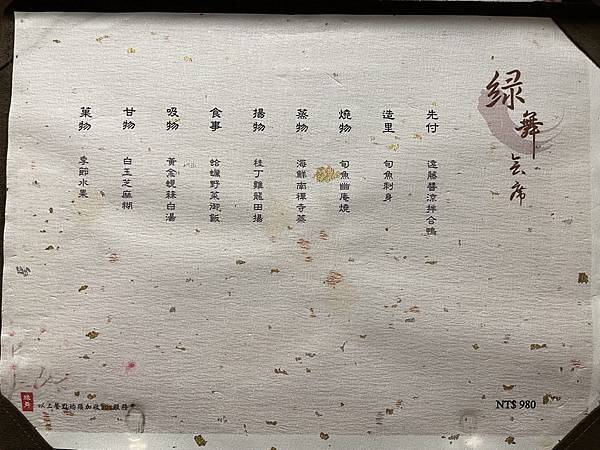 綠舞会席
先付 遠藤醬涼拌合鴨
造里 旬魚刺身
燒物 旬魚幽庵燒
蒸物 海鮮南禪寺蒸
揚物 桂丁雞龍田揚
食事 蛤蠣野菜御飯
吸物 黃金蜆絲白湯
甘物 白玉芝麻糊
菓物 季節水果
以上餐點均須加收10%服務費
NT$ 980